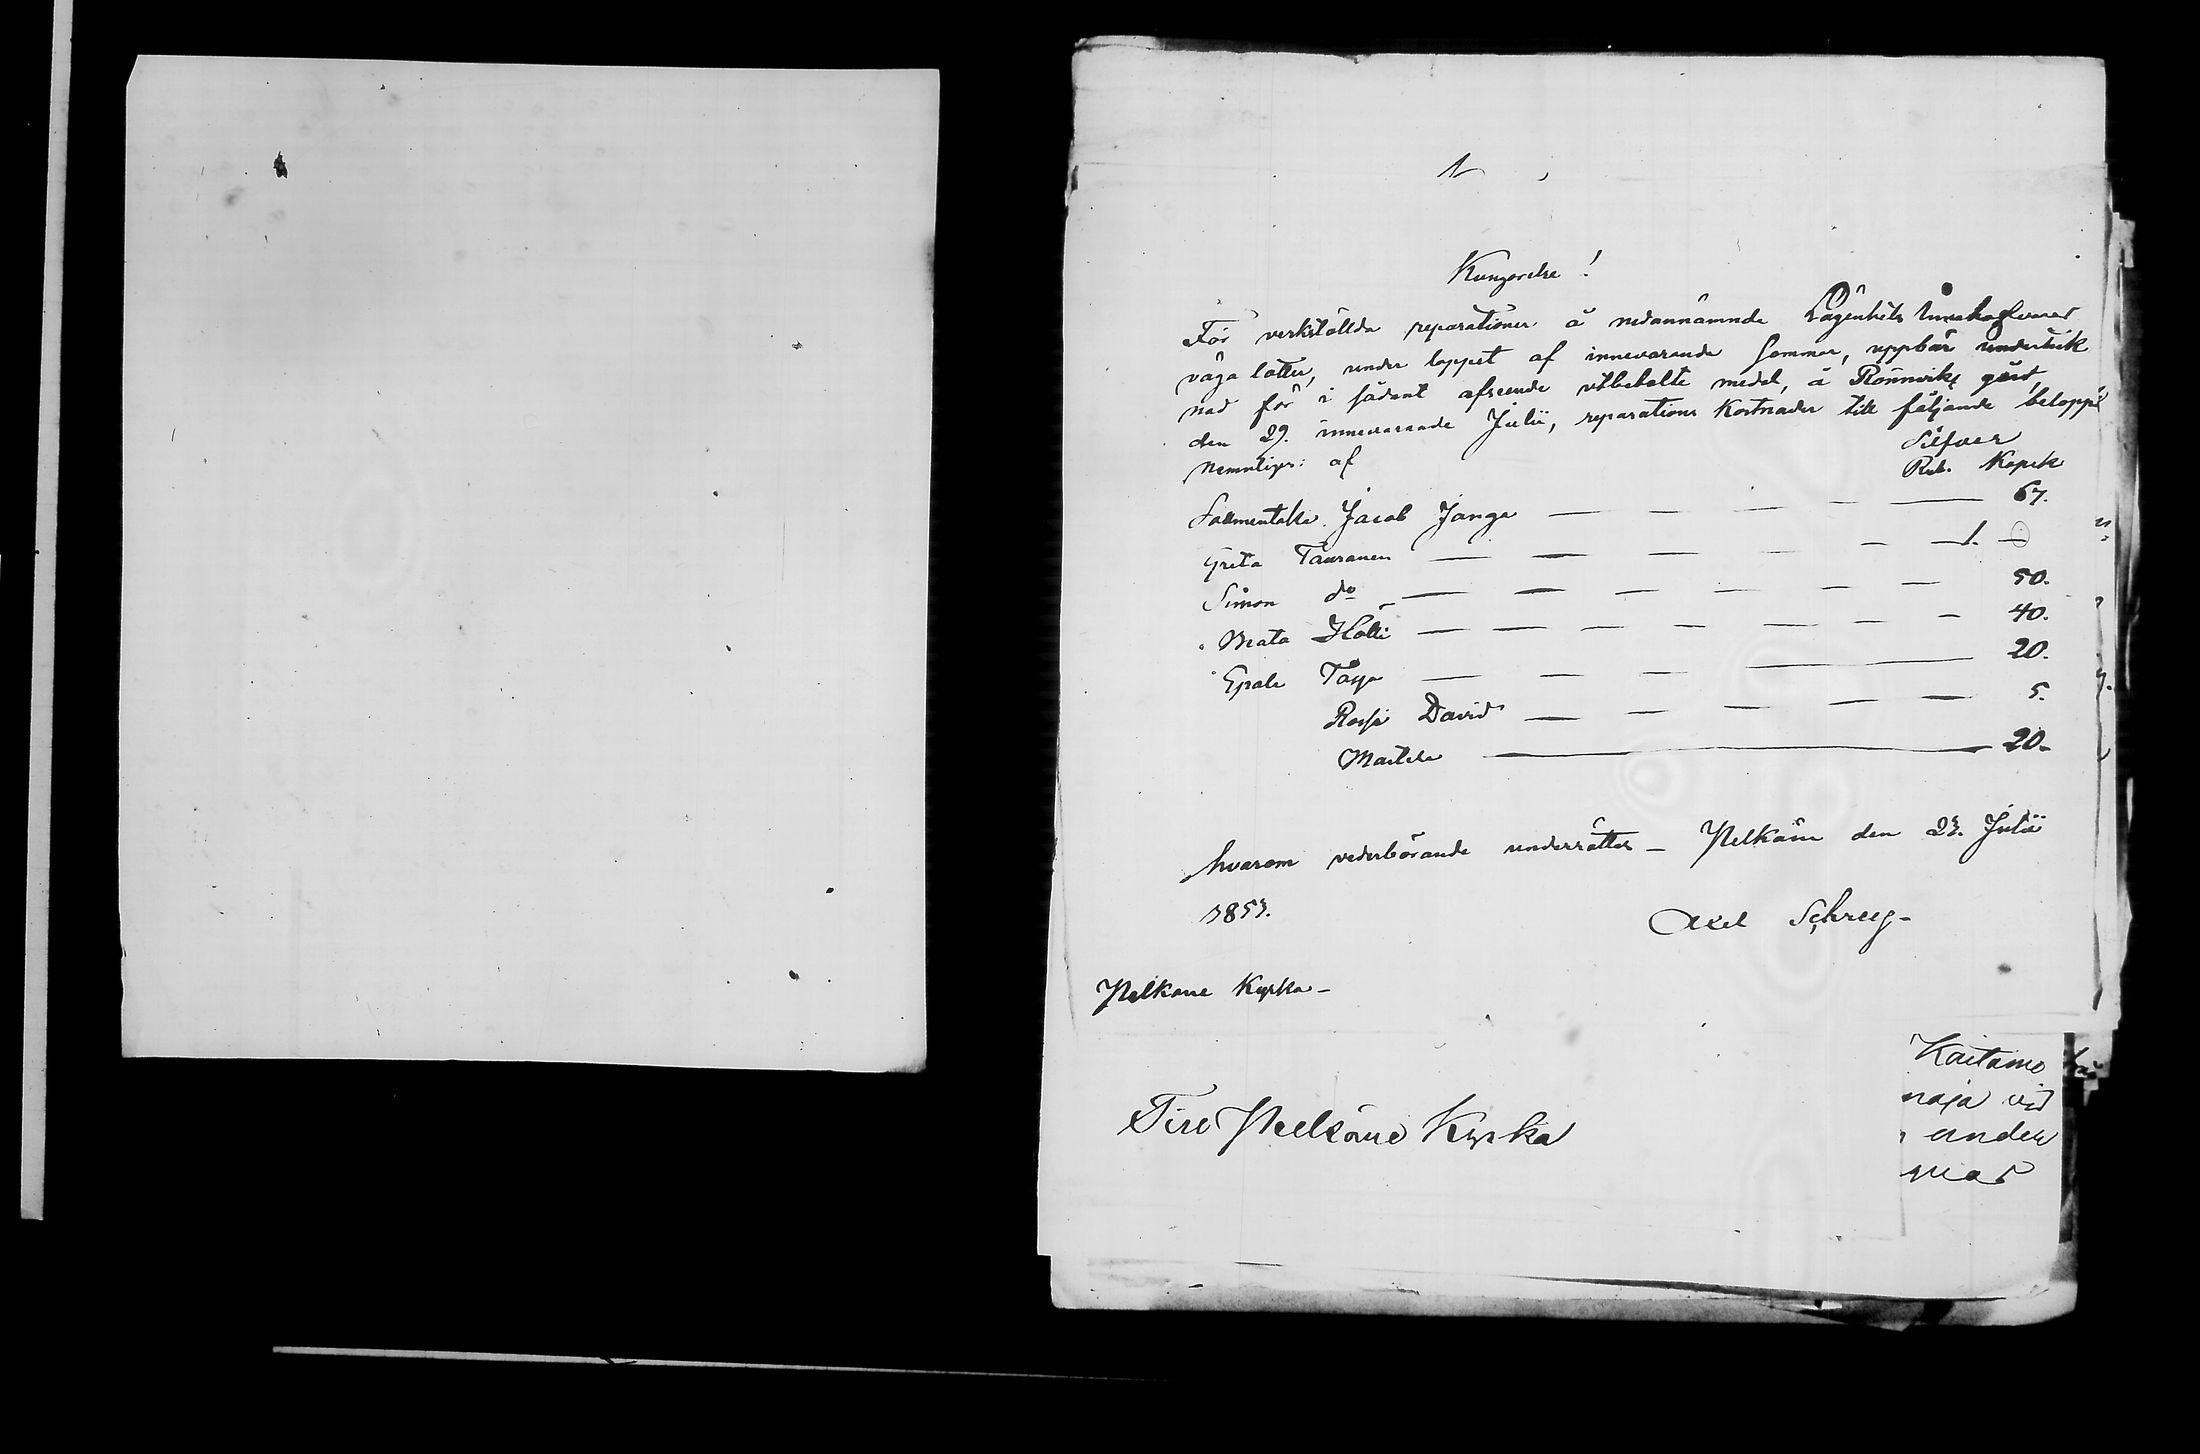 Kungörelse!
För verkställda reparationer å nedannämnde Lägenhets Innehafvares
väga lotter, under loppet af innevarande Sommar, uppbär underteck
nad för i sådant afseende utbetalte medel, å Rönnviks gård,
den 29. innevarande Julii, reparations Kostnader till följande belopp
Nemnligen: af
Silfver
Rub. Kopek
Salmentaka. Jacob Janga — — — — — 67.
Greta Tauranen — — — — — — 1. —
Simon do — — — — — — — 50.
Beata Hölli — — — — — — — 40.
Epala Töyja — — — — 20.
Rossi David — — — — — — 5.
Mattila — 20.
hvarom vederbörande underrättas — Pelkäne den 23. Julii
1853.
Axel Schreeg-
Pelkäne Kyrka-
Till Pelkäne Kyrka
Kaitamo
naja vid
ander